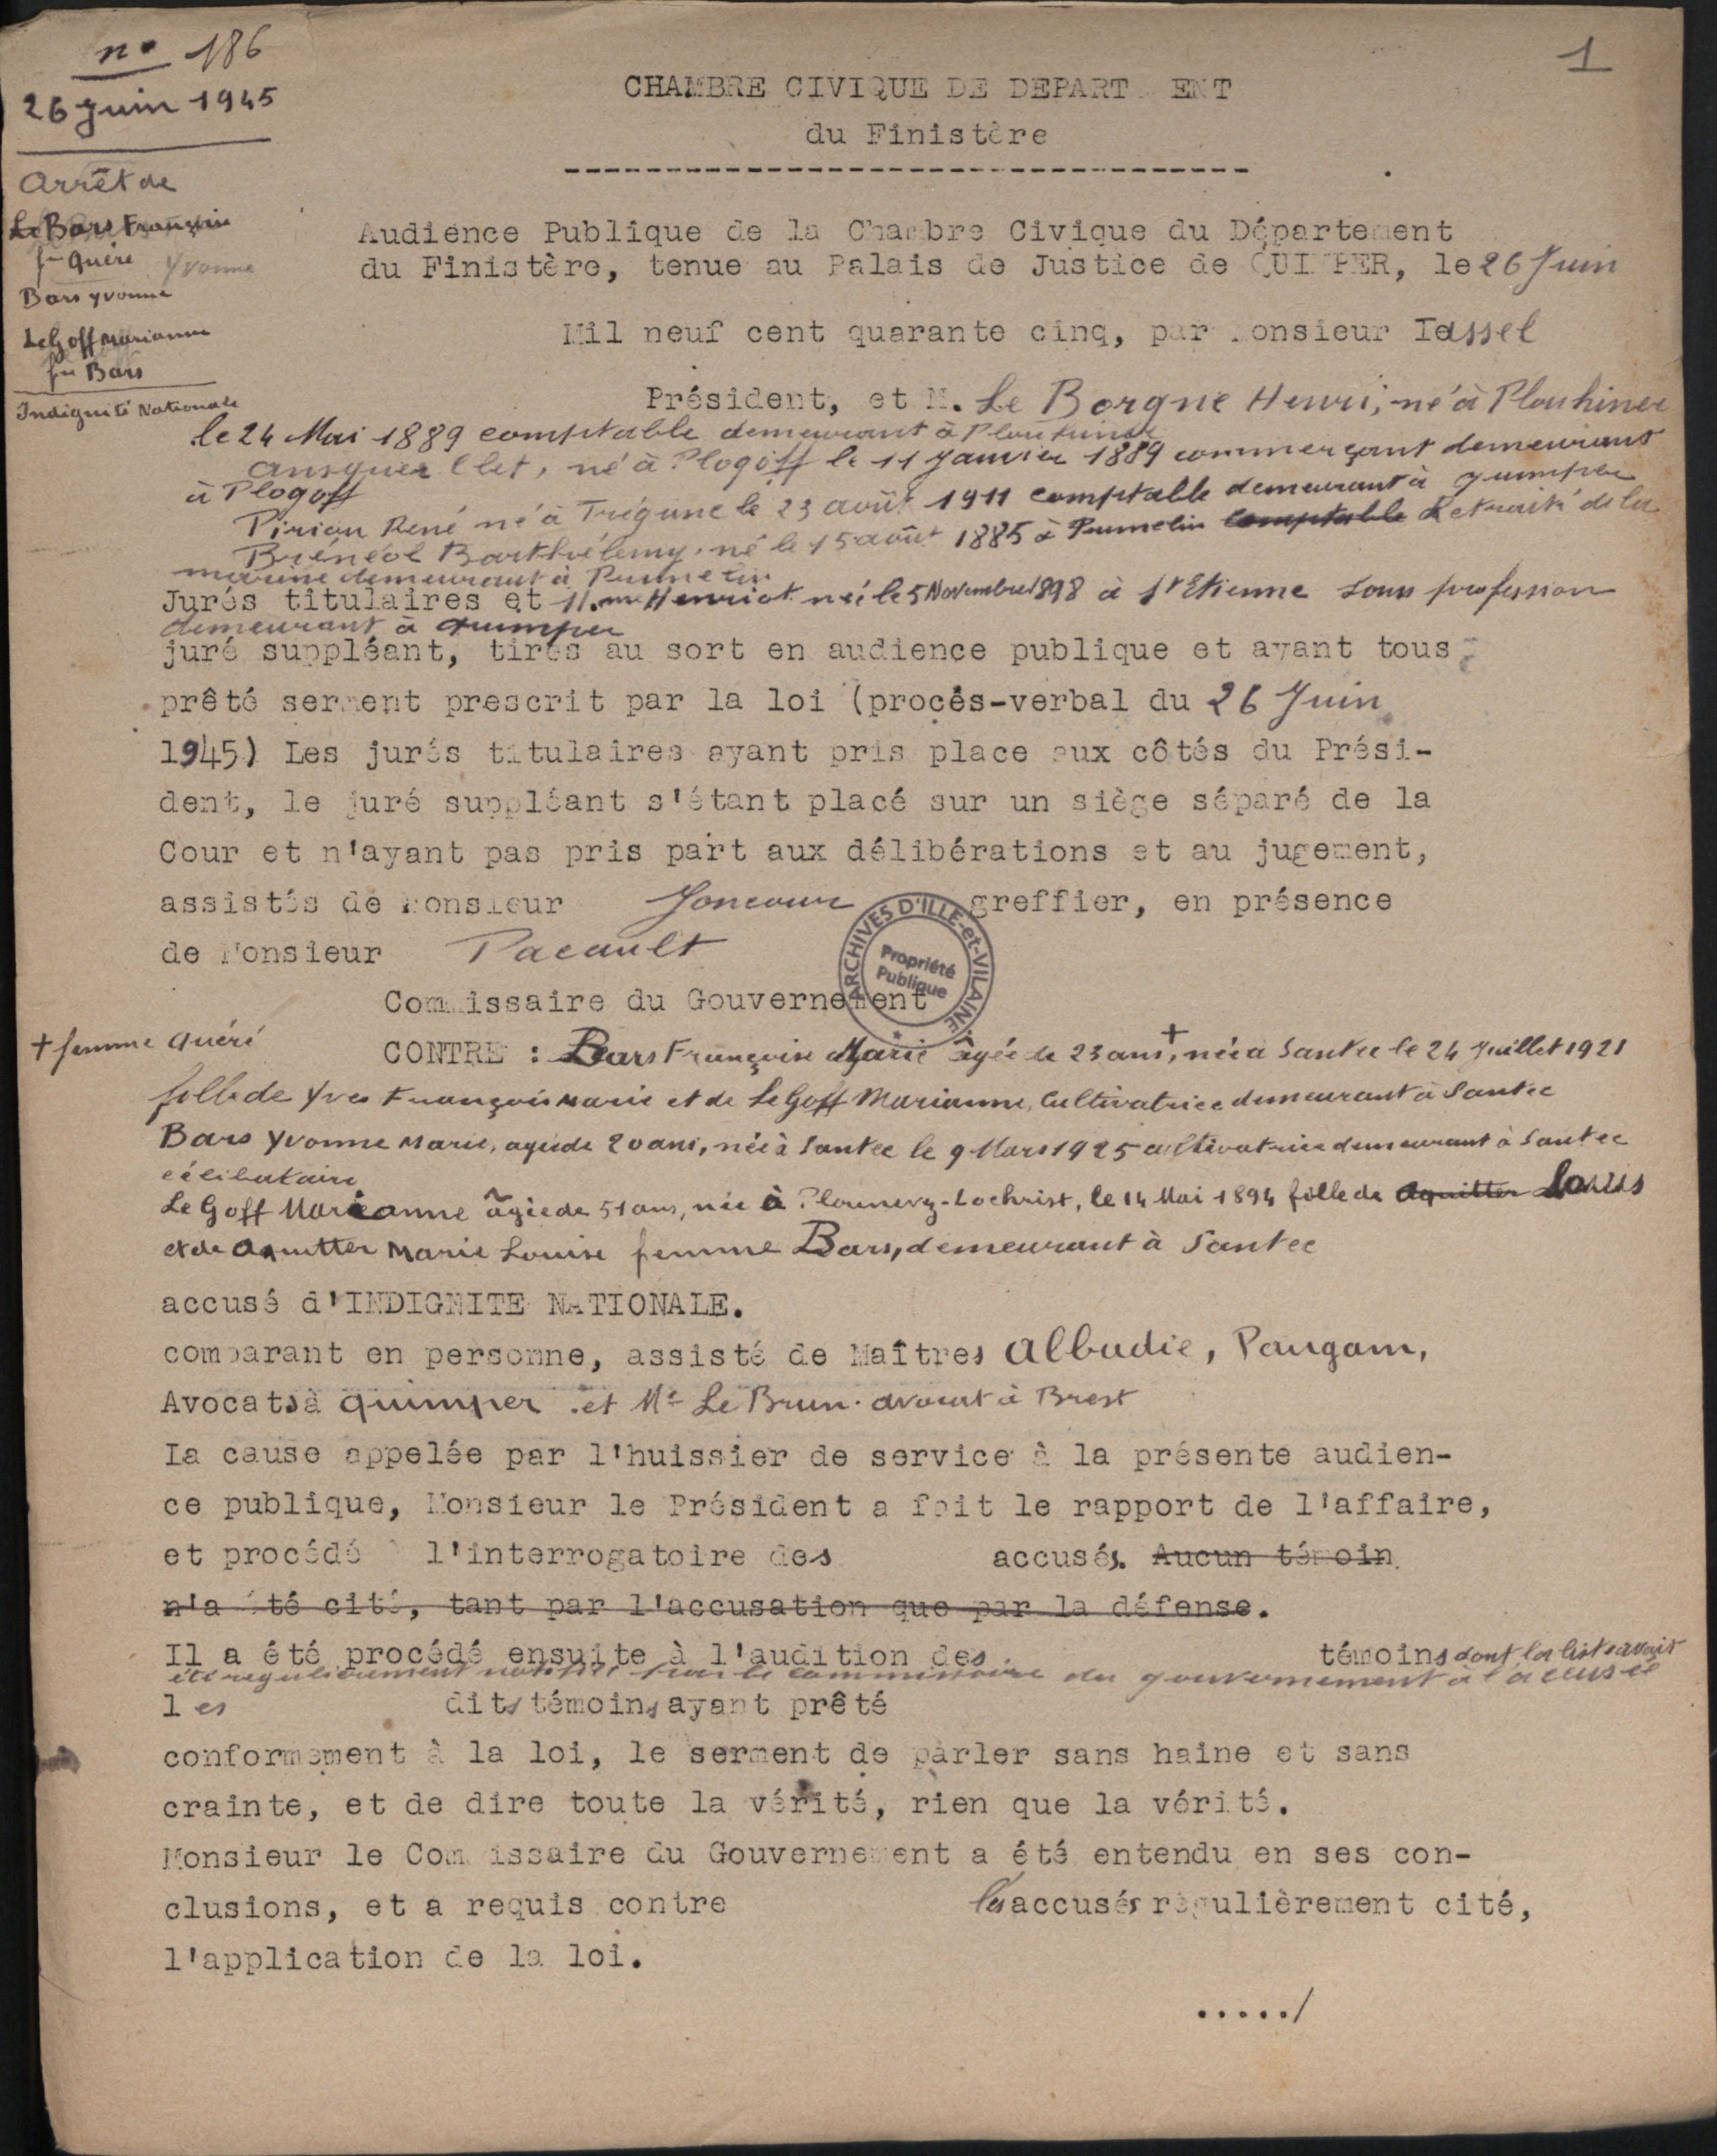 n° 186
26 Juin 1945
Arrêt de
Le Bars Françoise
fe Quéré Yvonne
Bars Yvonne
Le Goff Marianne
fe Bars
Indignité Nationale
1
CHAMBRE CIVIQUE DE DEPART ENT
du Finistère
Audience Publique de la Chambre Civique du Département
du Finistère, tenue au Palais de Justice de QUIMPER, le 26 Juin
Mil neuf cent quarante cinq, par Monsieur Tassel
Président, et M. Le Borgne Henri, né à Plouhinec
le 24 Mai 1889 comptable demeurant à Plouhinec
Ansquer Clet, né à Plogoff le 11 Janvier 1889 commerçant demeurant
à Plogoff
Piriou René né à Trégunc le 23 août 1911 comptable demeurant à Quimper
Brénéol Barthélemy, né le 15 août 1885 à Pumelin comptable Retraité de la
marine demeurant à Pumelin
Jurés titulaires et Mme Henriot née le 5 Novembre 1898 à St Etienne sans profession
demeurant à Quimper
juré suppléant, tirés au sort en audience publique et ayant tous
prêté serment prescrit par la loi (procès-verbal du 26 Juin
1945) Les jurés titulaires ayant pris place aux côtés du Prési-
dent, le juré suppléant s'étant placé sur un siège séparé de la
Cour et n'ayant pas pris part aux délibérations et au jugement,
assistés de Monsieur Joncour greffier, en présence
de Monsieur Pacault
ARCHIVES D'ILLE-et-VILAINE
Propriété
Publique
Commissaire du Gouvernement
+ femme Quéré
CONTRE : Bars Françoise Marie âgée de 23 ans +, née à Santec le 24 Juillet 1921
fille de Yves François Marie et de Le Goff Marianne, Cultivatrice demeurant à Santec
Bars Yvonne Marie, agée de 20 ans, née à Santec le 9 Mars 1925 cultivatrice demeurant à Santec
célibataire
Le Goff Marianne âgée de 51 ans, née à Plounevez-Lochrist, le 14 Mai 1894 fille de Aquitter Louis
et de Aquitter Marie Louise femme Bars, demeurant à Santec
accusé d'INDIGNITE NATIONALE.
comparant en personne, assisté de Maîtres Albadie, Paugam,
Avocats à Quimper et Me Le Brun avocat à Brest
La cause appelée par l'huissier de service à la présente audien-
ce publique, Monsieur le Président a fait le rapport de l'affaire,
et procédé à l'interrogatoire des accusés. Aucun témoin
n'a été cité, tant par l'accusation que par la défense.
Il a été procédé ensuite à l'audition des témoins dont la liste avait
été régulièrement notifiée par le commissaire du gouvernement à l'accusée
les dits témoins ayant prêté
conformement à la loi, le serment de parler sans haine et sans
crainte, et de dire toute la vérité, rien que la vérité.
Monsieur le Commissaire du Gouvernement a été entendu en ses con-
clusions, et a requis contre les accusés régulièrement cité,
l'application de la loi.
...../